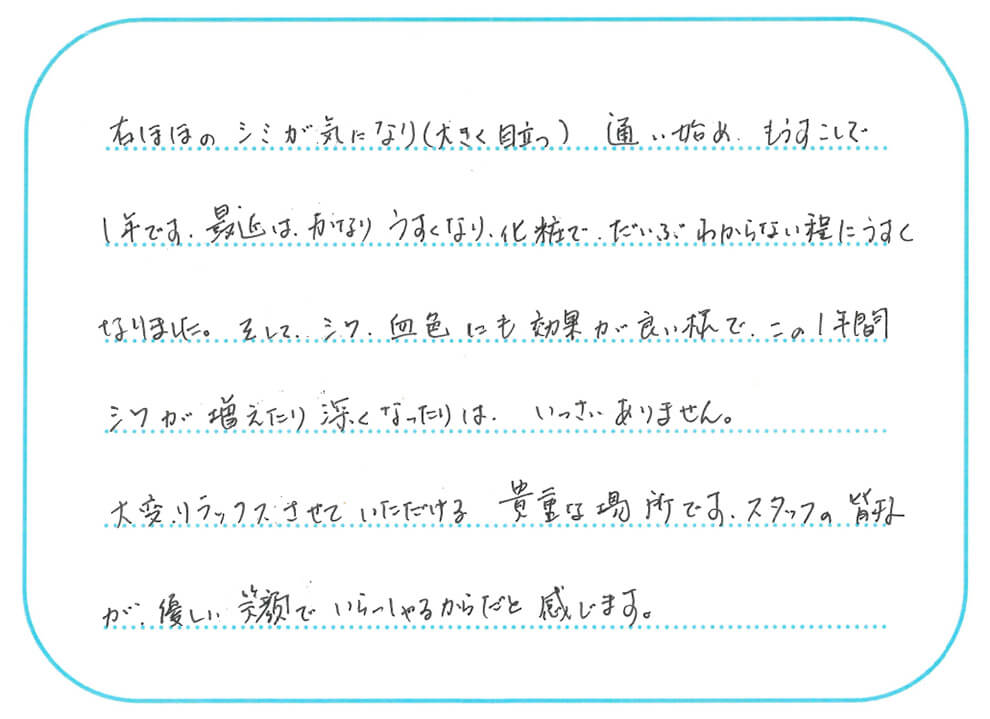 右ほほの シミが気になり(大きく目立つ) 通い始め、もうすこしで
1年です、最近は、かなり うすくなり、化粧で、だいぶ わからない程にうすく
なりました。そして、シワ、血色にも 効果が良い様で、この1年間
シワが 増えたり 深くなったりは、いっさい ありません。
大変、リラックスさせて いただける 貴重な場所です、スタッフの 皆さん
が、優しい 笑顔で いらっしゃるからだと 感じます。